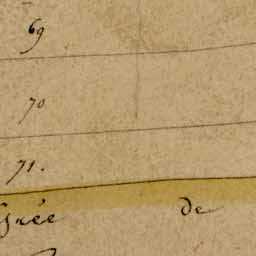 69
70
71.
de